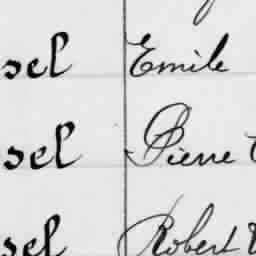 sel Emile
sel Pierre
sel Robert